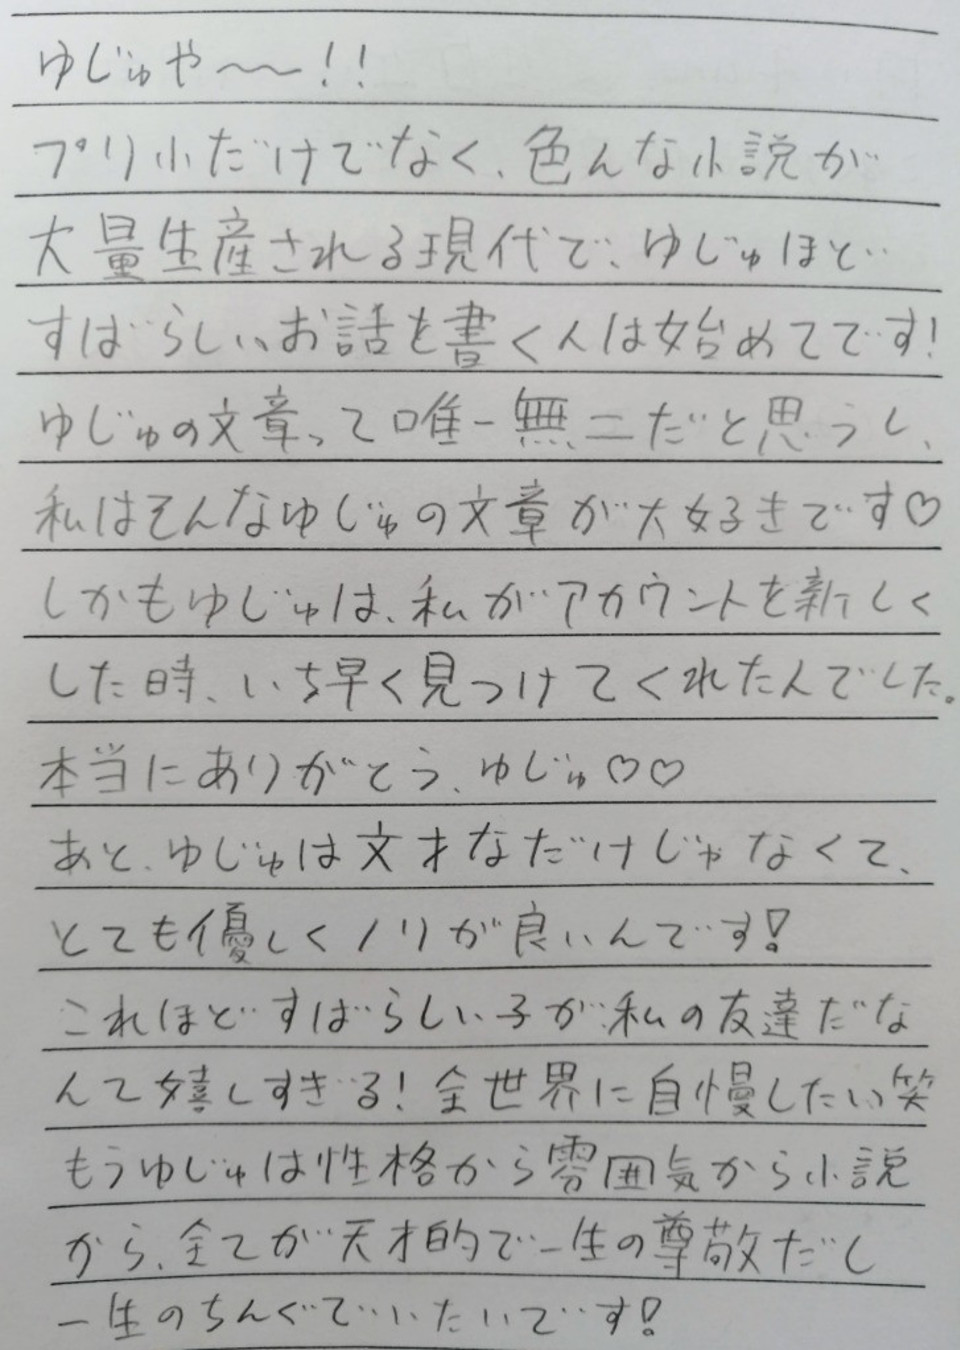 ゆじゅや〜〜!!
プリ小だけでなく、色んな小説が
大量生産される現代で、ゆじゅほど
すばらしいお話を書く人は始めてです!
ゆじゅの文章って唯一無二だと思うし、
私はそんなゆじゅの文章が大好きです♡
しかもゆじゅは、私がアカウントを新しく
した時、いち早く見つけてくれたんでした。
本当にありがとう、ゆじゅ♡♡
あと、ゆじゅは文才なだけじゃなくて、
とても優しくノリが良いんです!
これほどすばらしい子が私の友達だな
んて嬉しすぎる!全世界に自慢したい笑
もうゆじゅは性格から雰囲気から小説
から、全てが天才的で一生の尊敬だし
一生のちんぐでいたいです!